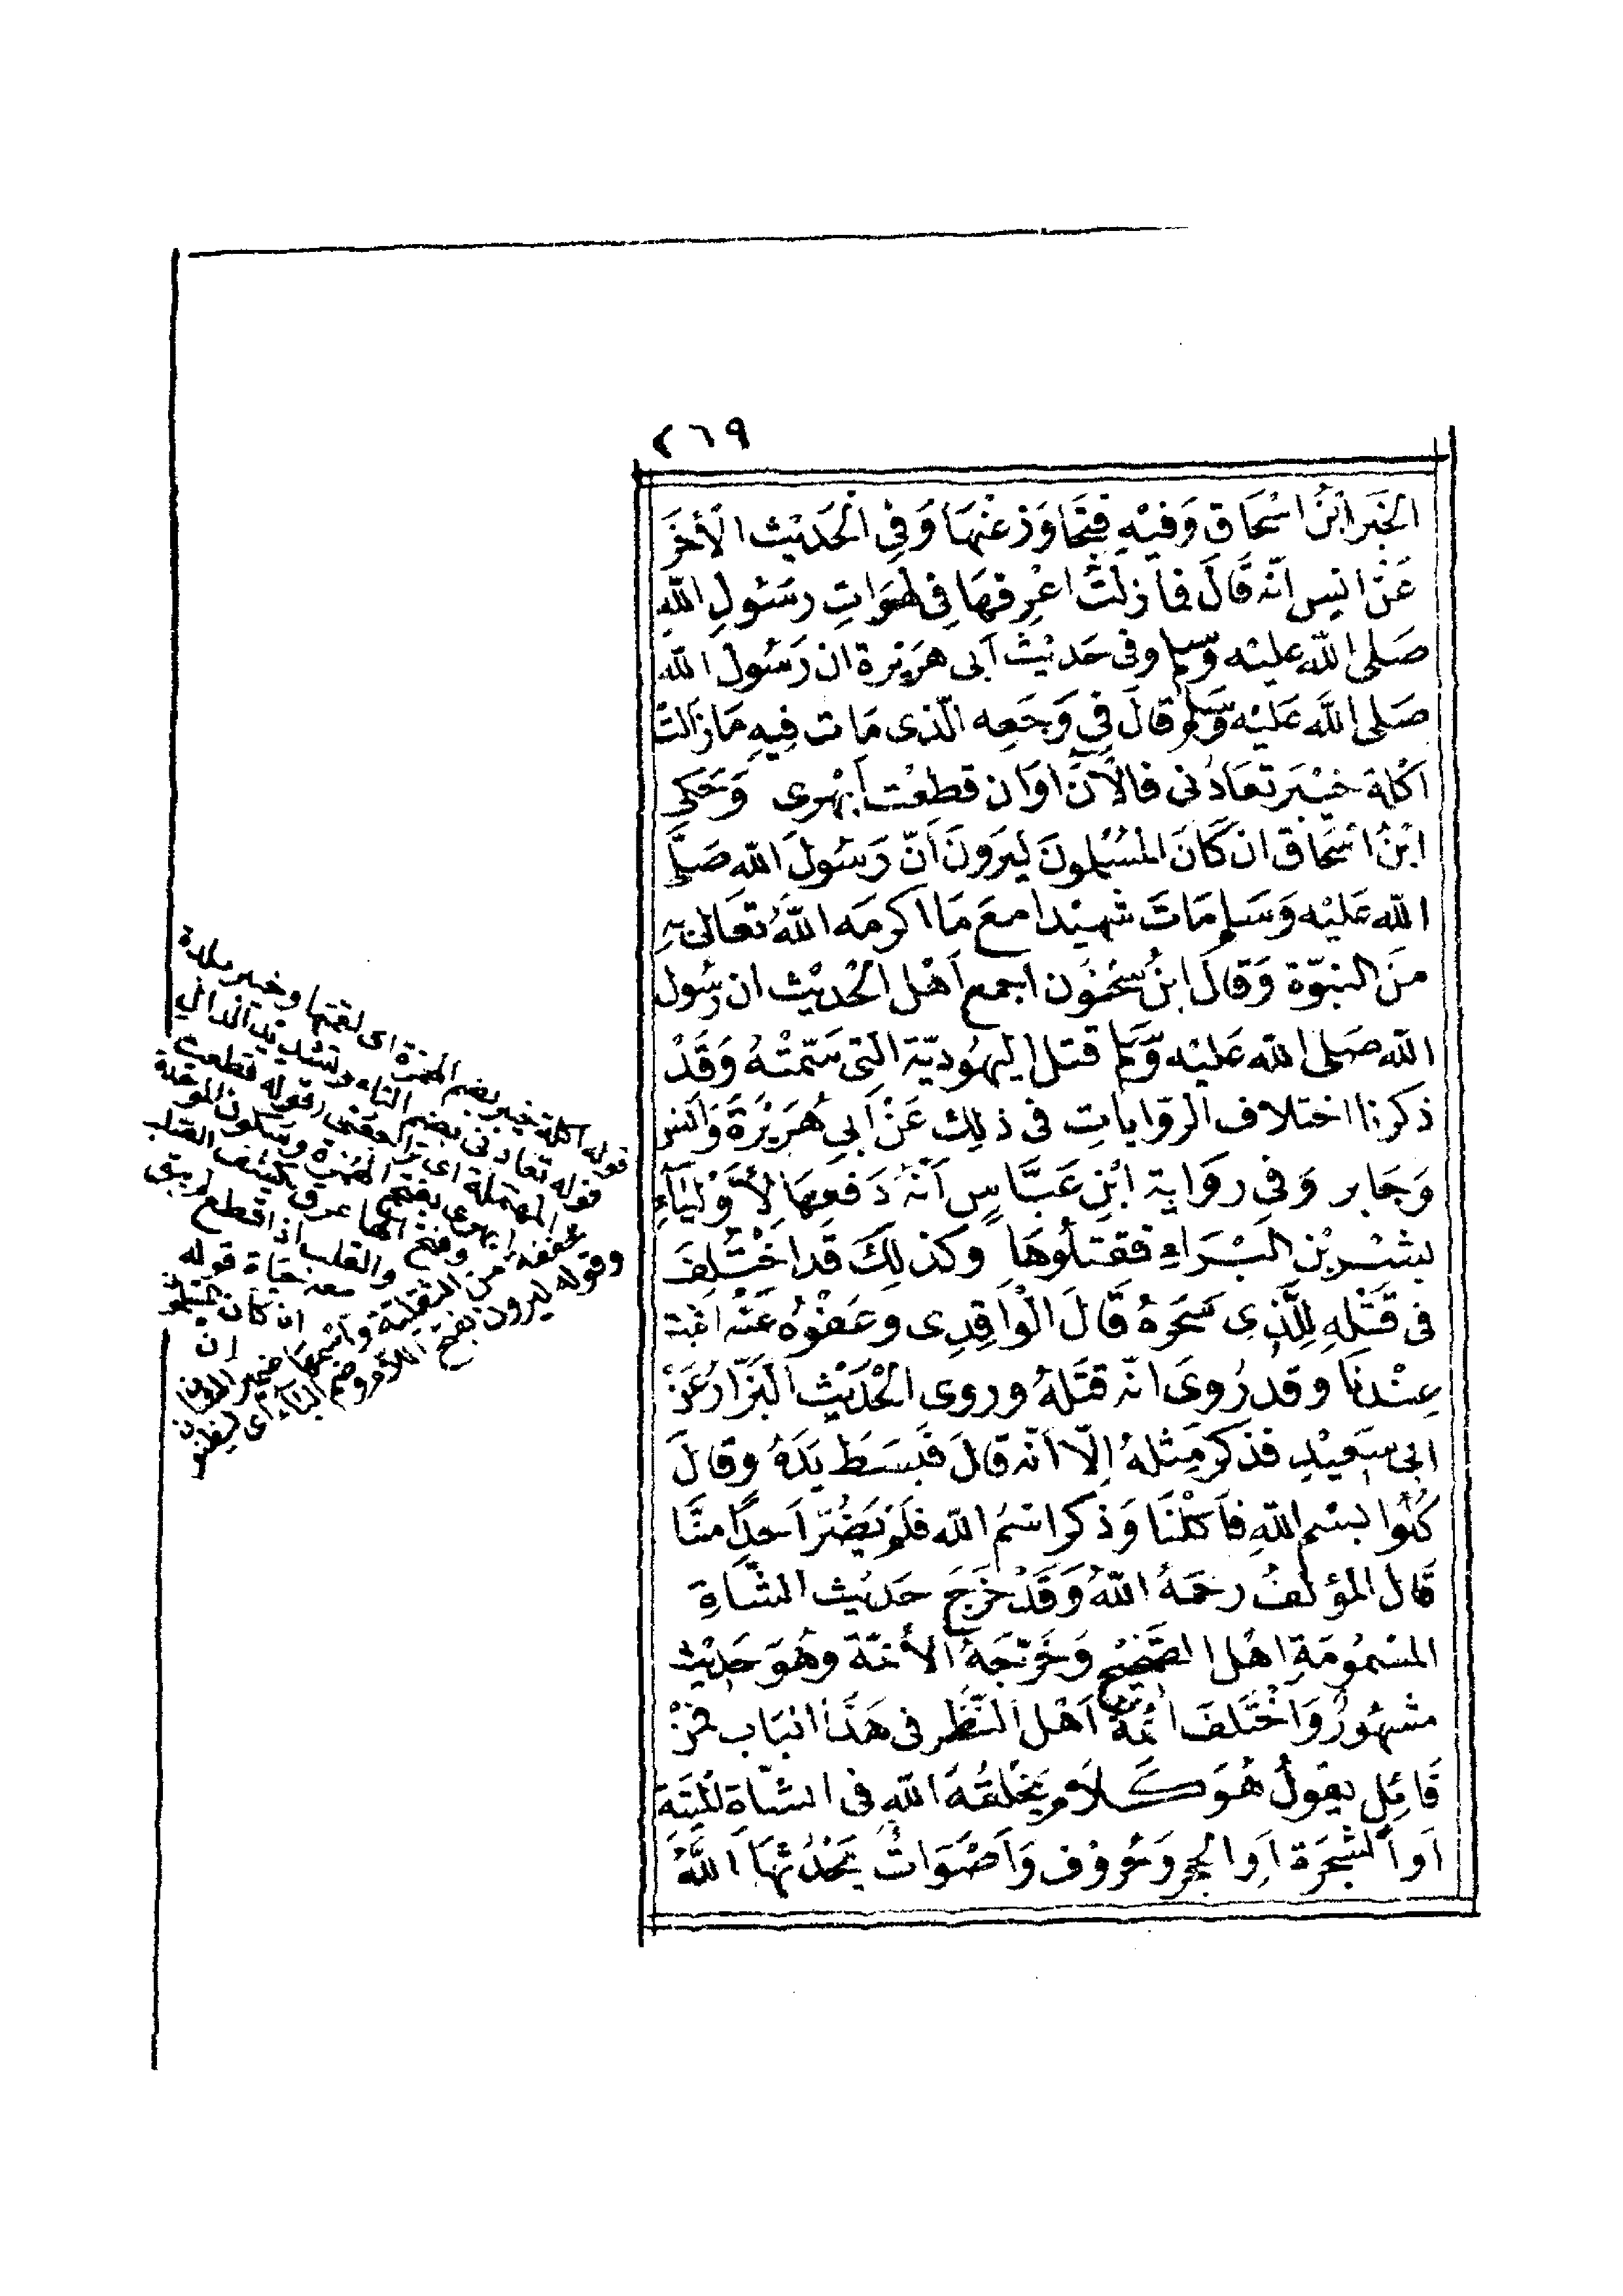 ٢٦٩
الخبر ابن اسْحَاق وَفيْهِ فتجَاوَز عنْهَا وَفِى الْحَديْث الأخَر
عَنْ انسٍ انّه قَالَ فما زلْتُ اعْرِفهَا فِى لهَوَاتِ رسَوُلِ اللّهِ
صَلى اللّه عليْه وسلم وفى حَديْث أبى هرَيْرة ان رَسُولَ اللّه
صَلى اللَّه عَليْه وَسَلم قالَ فِى وَجَعِه الّذى مَات فِيهِ مَا زَالتْ
اَكْلة خيْبَر تعَادُّنى فالآنَ اوَان قطعْت اَبْهرى وَحَكى
ابْنُ اسْحَاق ان كَانَ المُسْلمونَ ليَرَونَ اَنّ رَسُولَ اللّه صَلَّى
اللّه عَليْه وَسَلم مَاتَ شهيْدا معَ مَا اكرمَه اللّهُ تعَالى به
منَ النبوّة وَقالَ ابنُ سُحْنون اجمع اَهْل الْحْديْث ان رسُول
اللّه صَلى اللّه عَليْه وسَّلم قتل اليهُوديّة التى سَمّتْهُ وَقَدْ
ذكرنا اختلاف الرّوَاياتِ فى ذلِك عَنْ اَبِى هُرَيْرَةَ وَاَنس
وَجَابر وَفى روَاية ابْنِ عَبَّاسٍ اَنّهُ دَفعهَا لأوْليَآءِ
بشْر بْن البْرَاء فقتلُوهَا وكذلِكَ قَد اخْتُلِفَ
فى قَتْلهِ لِلَّذِى سَحَرهُ قَالَ الْوَاقِدِى وعَفْوُهُ عَنْه اثبت
عِنْدنَا وقد رُوىَ انّه قتَلهُ وروى الْحْدَيْث البَزّارُ عَنْ
ابى سعيْدٍ فذكر مثلهُ اِلّا انّه قالَ فبَسَط يَدَهُ وقالَ
كُلُوا بسْم اللّهِ فاَكلْنَا وَذكر اسْمُ اللّه فلَمْ يَضُرّ اَحدًا منَّا
قَال المؤلفُ رحمَهُ اللّهُ وَقَدْ خَرجَ حَديْث الشَّاةِ
المسْمُومَةِ اهْل الصّحَيْح وَخَرّجَهُ الأئمَّة وهُوَ حَدِيْث
مشهُورٌ وَاخْتَلفَ ائمّة اَهْل النّظر فى هَذَا البَاب فمِنْ
قَائِلٍ يقولُ هُوَ كَلاَم يخْلقُهُ اللّه فى الشّاةِ المَيّتَةِ
اَو الشجَرَة اَو الحجر وَحُروْف وَاَصْوَاتٌ يَحْدُثهَا اللَّهُ
قوله اكلة خيبر بضم الهمزة اى لقمتها وخيبر بلدة
قوله تعادنى بضم التاء وتشديد الدال
المهملة اى وقوله قطعت
ابهرى بفتح الهمزة وسكون الموحدة
وفتح الها عرق يكتنف القلب
والقلب اذا قطع لم يبق
معه حياة قوله
ان كان
ان
مخففة من الثقيلة واسمها ضمير الشان
وقوله ليرون بفتح اللام وضم الياء اى ليظنون